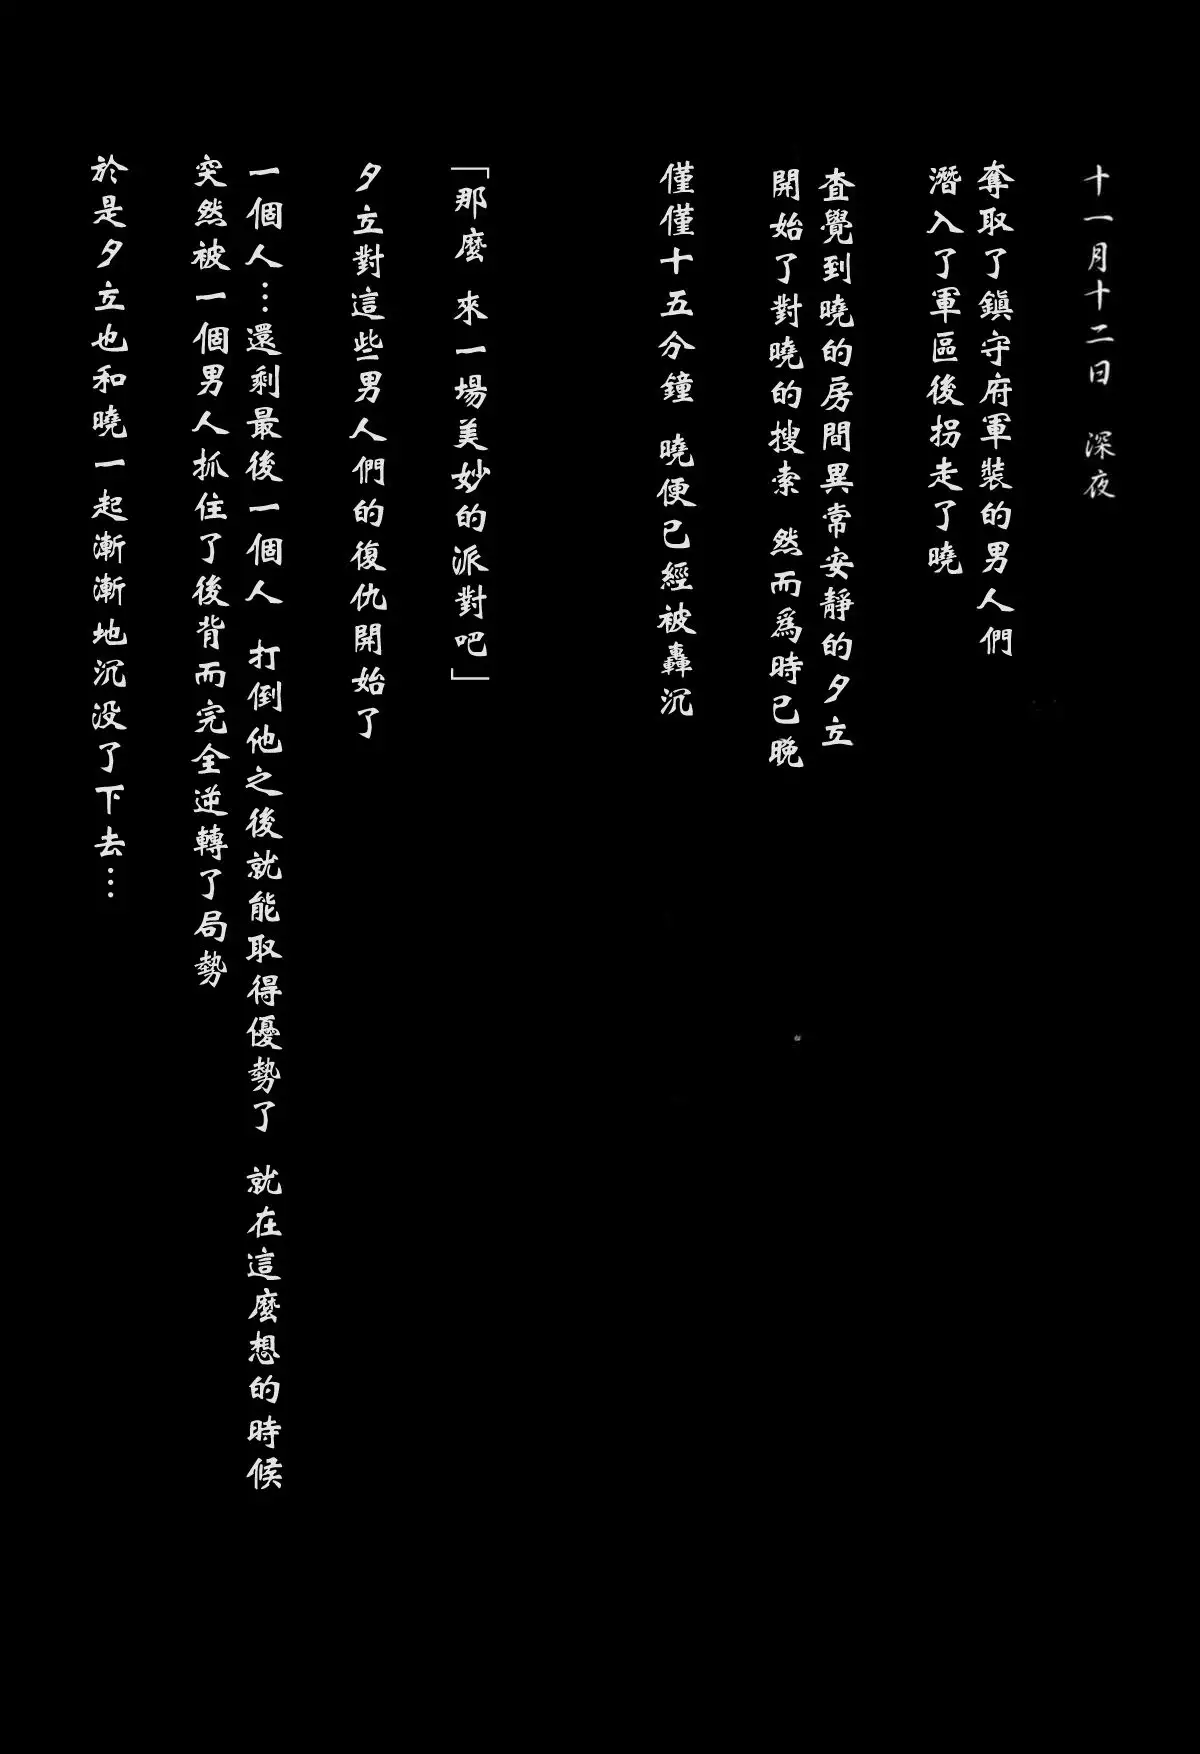 十一月十二日　深夜
奪取了鎮守府軍裝的男人們
潛入了軍區後拐走了曉
查覺到曉的房間異常安靜的夕立
開始了對曉的搜索 然而為時已晚
僅僅十五分鐘 曉便已經被轟沉
「那麼 來一場美妙的派對吧」
夕立對這些男人們的復仇開始了
一個人…還剩最後一個人 打倒他之後就能取得優勢了 就在這麼想的時候
突然被一個男人抓住了後背而完全逆轉了局勢
於是夕立也和曉一起漸漸地沉没了下去…